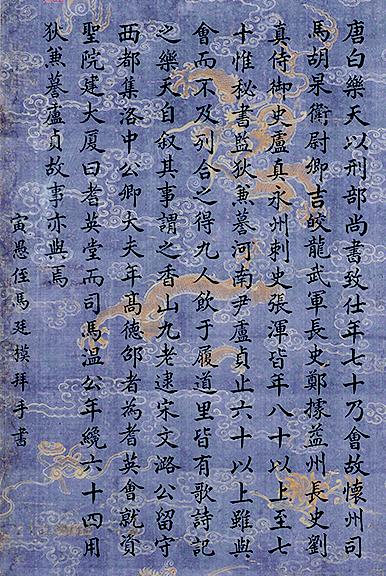 唐白樂天以刑部尚書致仕年七十乃會故懷州司
馬胡杲衛尉卿吉皎龍武軍長史鄭據益州長史劉
真侍御史盧真永州刺史張渾皆年八十以上至七
十惟秘書監狄兼謩河南尹盧貞止六十以上雖與
會而不及列合之得九人飲于履道里皆有歌詩記
之樂天自叙其事謂之香山九老逮宋文潞公留守
西都集洛中公卿大夫年高德邵者為耆英會就資
聖院建大厦曰耆英堂而司馬溫公年纔六十四用
狄兼謩盧貞故事亦與焉
寅愚侄馬廷模拜手書